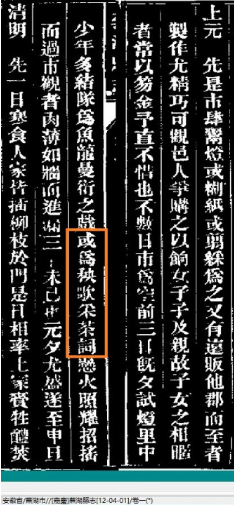 上元 先是市肆鬻燈或糊紙或翦綵爲之又有遠販他郡而至者
製作尤精巧可觀邑人爭購之以餉女子子及親故子女之相暱
者常以金予直不惜也不數日市爲空前三日既夕試燈里中
少年多結隊爲魚龍曼衍之戲或爲秧歌采茶詞懸火照耀招搖
而過市觀者肉薄如牆而進漏三未已也元夕尤盛遂至申旦
清明 先一日寒食人家皆插柳枝於門是日相率上冢賚牲醴焚
安徽省/蕪湖市//[嘉慶]蕪湖縣志[12-04-01]/卷一(*)